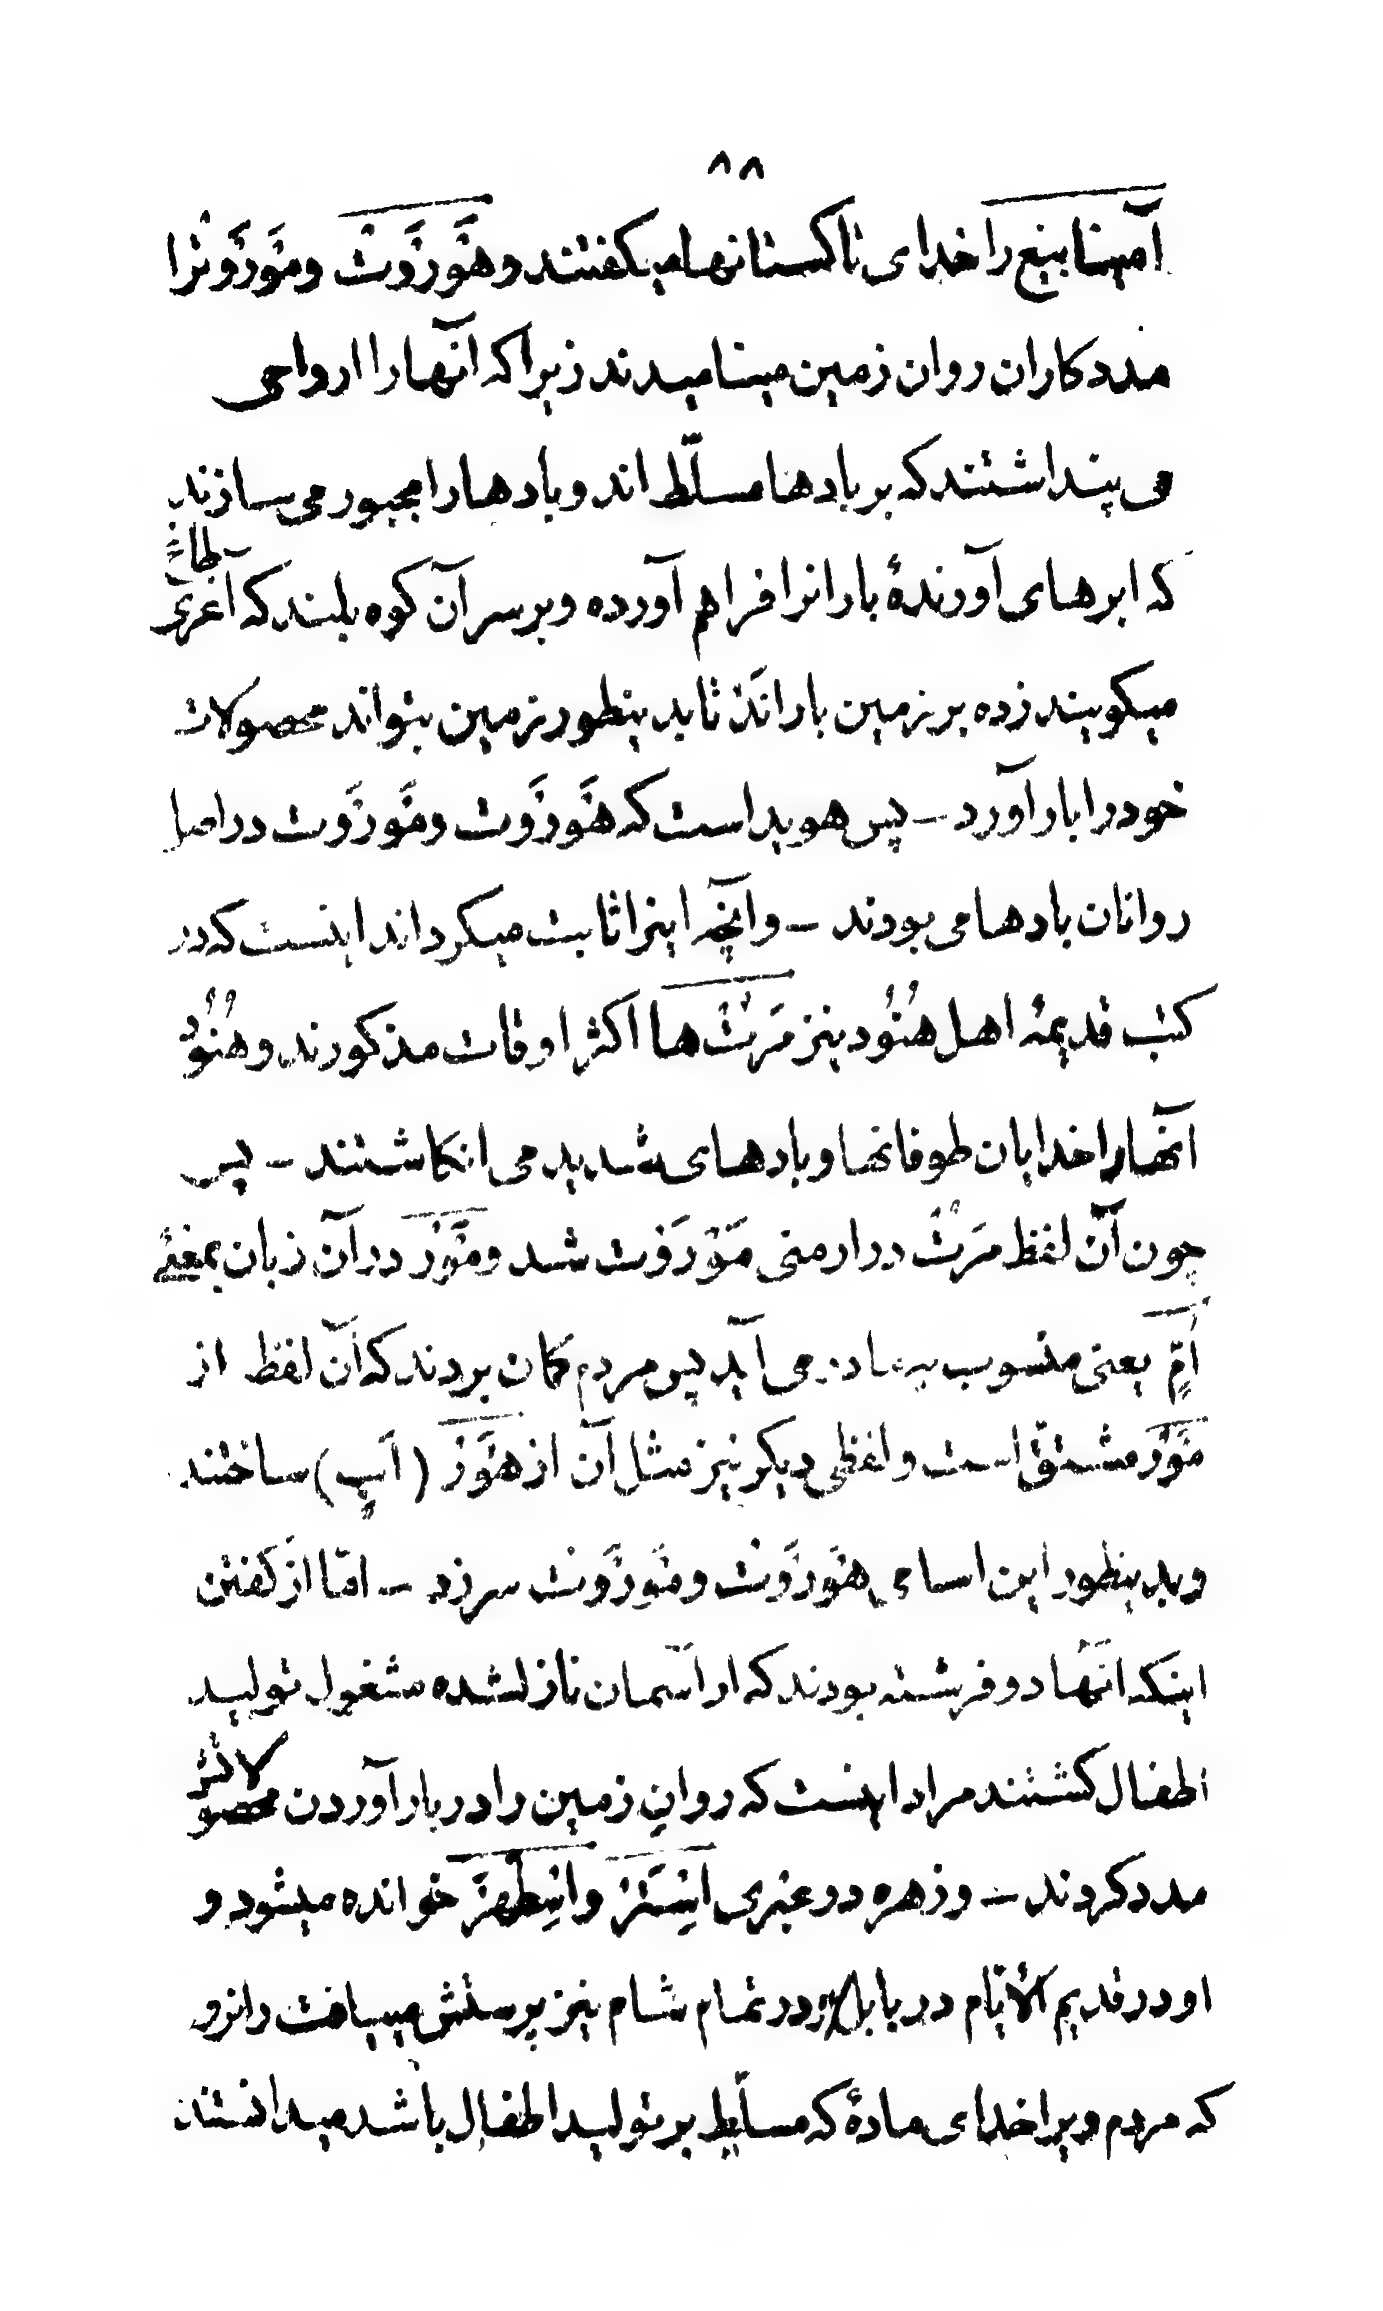 ۸۸
آمینابیغ را خدای تاکستانها میگفتند و هَوَرْوَتْ و مَوَرْوَتْرا
مددکاران روان زمین مینامیدند زیرا که آنها را ارواحی
می پنداشتند که بر بادها مسلّط اند و بادها را مجبور می سازند
که ابرهای آورندهٔ بارانرا فراهم آورده و بر سر آن کوه بلند که آغری طاغ
میگویند زده بر زمین بارانَنْد تا بدینطور زمین بتواند محصولات
خود را بار آورد – پس هویداست که هَوَرْوَت و مَوَرْوَت در اصل
روانان بادها می بودند – و آنچه اینرا ثابت میگرداند اینست که در
کتب قدیمهٔ اهل هُنُود نیز مَرُتْ ها اکثر اوقات مذکورند و هُنُود
آنها را خدایان طوفانها و بادهای شدید می انگاشتند – پس
چون آن لفظ مَرُتْ در ارمنی مَوْرَوْت شد و مَوَرْ در آن زبان بمعنیِ
اُمّ یعنی منسوب به مادر می آید پس مردم گمان بردند که آن لفظ از
مَوَرْ مشتقّ است و لفظی دیگر نیز مثل آن از هَوَرْ (اَبٍ) ساختند
و بدینطور این اسامی هَوَرْوَتْ و مَوَرْوَتْ سر زد – امّا از گفتن
اینکه آنها دو فرشته بودند که از آسمان نازلشده مشغول تولید
اطفال گشتند مراد اینست که روانِ زمین را در بار آوردن محصولاتش
مدد کردند – و زهره در عبری اِیسْتَرْ و اِیطْهَرْ خوانده میشود و
او در قدیم الأیّام در بابل و در تمام شام نیز پرستش مییافت از آنرو
که مردم ویرا خدای مادهٔ که مسلّط بر تولید اطفال باشد میدانستند